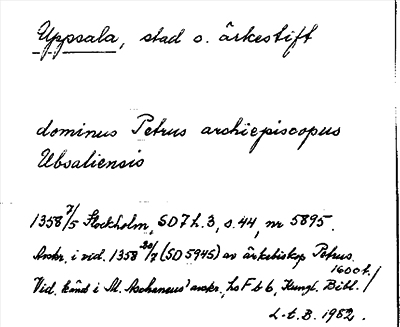 Uppsala, stad o. ärkestift
dominus Petrus archiepiscopus
Ubsaliensis
1358 7/5 Stockholm, SD 7 h. 3, s. 44, nr 5895.
Avskr. i vid. 1358 20/7 (SD 5945) av ärkebiskop Petrus.
Vid. känd i M. Aschaneus' avskr., hs F b 6, Kungl. Bibl. / 1600 t. /
L-t. B. 1952.